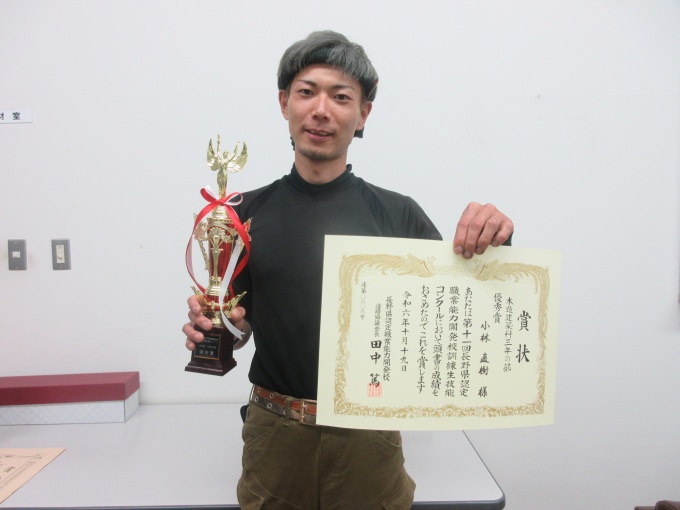 材室
賞状
木造建築科三年の部
優秀賞
小林直樹様
あなたは第十一回長野県認定
職業能力開発校訓練生技能
コンクールにおいて頭書の成績を
おさめたのでこれを賞します
令和六年十月十九日
長野県認定職業能力開発校
連絡協議会長
田中篤